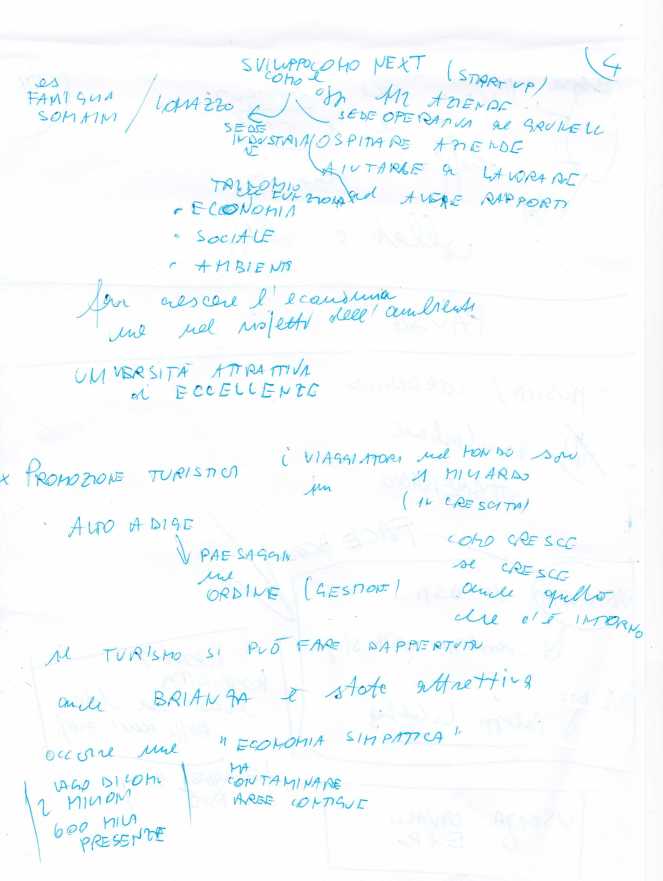 4
SVILUPPO COMO NEXT (START UP)
COMO È
es
FAMIGLIA
SOMAINI
LOMAZZO
oggi 112 AZIENDE
SEDE
INDUSTRIALE
SEDE OPERATIVA al GRUMELLO
OSPITARE AZIENDE
AIUTARLE a LAVORARE
AVERE RAPPORTI
• ECONOMIA
• SOCIALE
• AMBIENTE
far crescere l'economia
ma nel rispetto dell'ambiente
UNIVERSITÀ ATTRATTIVA
di ECCELLENZE
x PROMOZIONE TURISTICA
i VIAGGIATORI nel MONDO sono
1 MILIARDO
(IN CRESCITA)
ALTO ADIGE
PAESAGGIO
ma
ORDINE (GESTIONE)
COMO CRESCE
se CRESCE
anche quello
che c'è INTORNO
il TURISMO SI PUÒ FARE DAPPERTUTTO
anche BRIANZA è stata attrattiva
occorre una "ECONOMIA SIMPATICA"
LAGO DI COMO
2 MILIONI
600 MILA
PRESENZE
MA
CONTAMINARE
AREE CONTIGUE